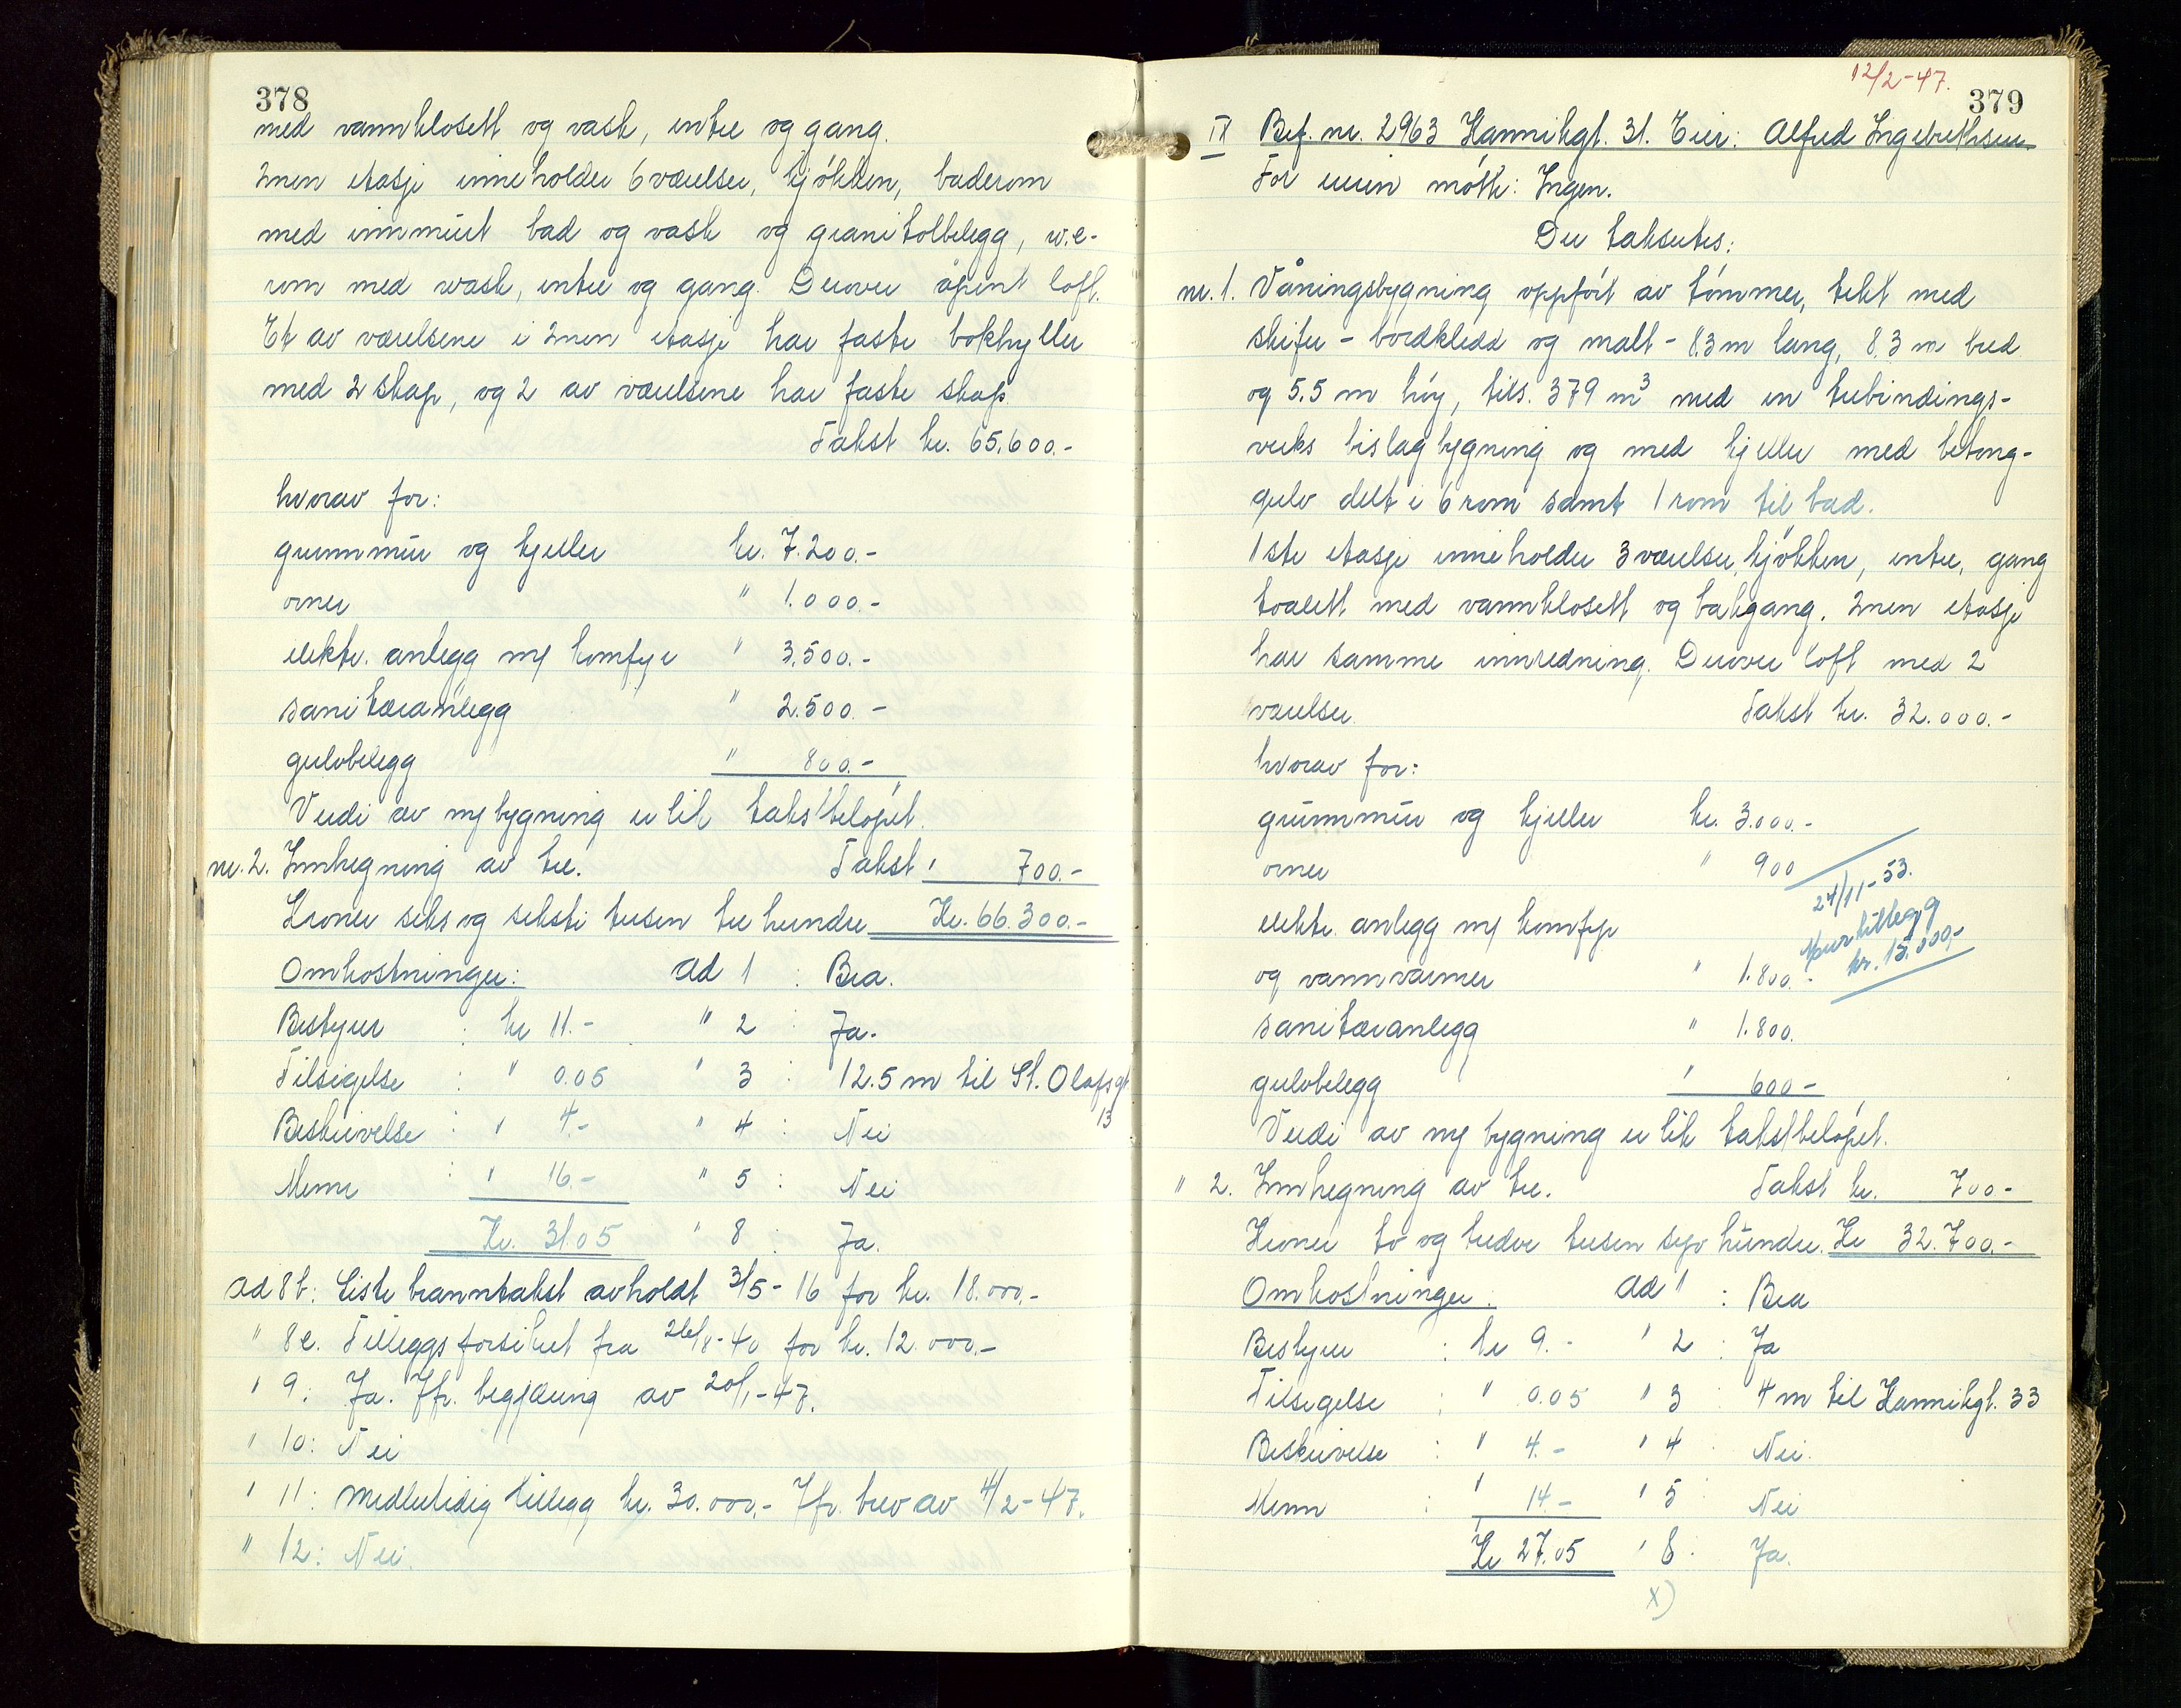 378
med vannklosett og vask, entre og gang.
2nen etasje inneholder 6 værelser, kjøkken, baderom
med innmurt bad og vask og granitolbelegg, w.c-
rom med vask, entre og gang. Derover åpent loft.
Et av værelsene i 2nen etasje har faste bokhyller
med 2 skap, og 2 av værelsene har faste skap
Takst kr. 65.600.-
hvorav for:
grunnmur og kjeller kr. 7.200.-
ovner " 1.000.-
elektr. anlegg m/ komfyr " 3.500.-
sanitæranlegg " 2.500.-
gulvbelegg " 800.-
Verdi av ny bygning er lik takstbeløpet.
nr. 2. Innhegning av tre. Takst " 700.-
Kroner seks og seksti tusen tre hundre Kr. 66.300.-
Omkostninger: ad 1 : Bra.
Bestyrer : kr 11.- " 2 : Ja.
Tilsigelse : " 0.05 " 3 : 12.5 m til St. Olafsgt
13
Beskrivelse : " 4.- " 4 : Nei
Menn : " 16.- " 5 : Nei
Kr. 31.05 " 8 : Ja.
ad 8b: Siste branntakst avholdt 3/5-16 for kr. 18.000.-
" 8c. Tilleggsforsikret fra 26/8-40 for kr. 12.000.-
" 9: Ja. Jfr. begjæring av 20/1-47.
" 10: Nei
" 11: Midlertidig tillegg kr. 30.000.- Jfr. brev av 4/2-47.
" 12: Nei.
12/2-47.
379
IX Bef. nr. 2963 Kannikgt. 31. Eier: Alfred Ingebrethsen
For eieren møtte: Ingen.
Der takseres:
nr. 1. Våningsbygning oppført av tømmer, tekt med
skifer - bordkledd og malt - 8.3 m lang, 8.3 m bred
og 5.5 m høy, tils. 379 m³ med en trebindings-
verks bislagbygning og med kjeller med betong-
gulv delt i 6 rom samt 1 rom til bad.
1ste etasje inneholder 3 værelser, kjøkken, entre, gang
toalett med vannklosett og bakgang. 2nen etasje
har samme innredning. Derover loft med 2
værelser. Takst kr. 32.000.-
hvorav for:
grunnmur og kjeller kr. 3.000.-
ovner " 900
24/11-53.
Murtillegg
kr. 15.000,-
elektr. anlegg m/ komfyr
og vannvarmer " 1.800.-
sanitæranlegg " 1.800.
gulvbelegg " 600-
Verdi av ny bygning er lik takstbeløpet.
" 2. Innhegning av tre. Takst kr. 700-
Kroner to og tredve tusen syv hundre. Kr 32.700.-
Omkostninger: ad 1 : Bra
Bestyrer : kr 9.- " 2 : Ja
Tilsigelse : " 0.05 " 3 : 4 m til Kannikgt. 33
Beskrivelse : " 4.- " 4 : Nei.
Menn : " 14.- " 5 : Nei
Kr 27.05 " 8 : Ja.
x)